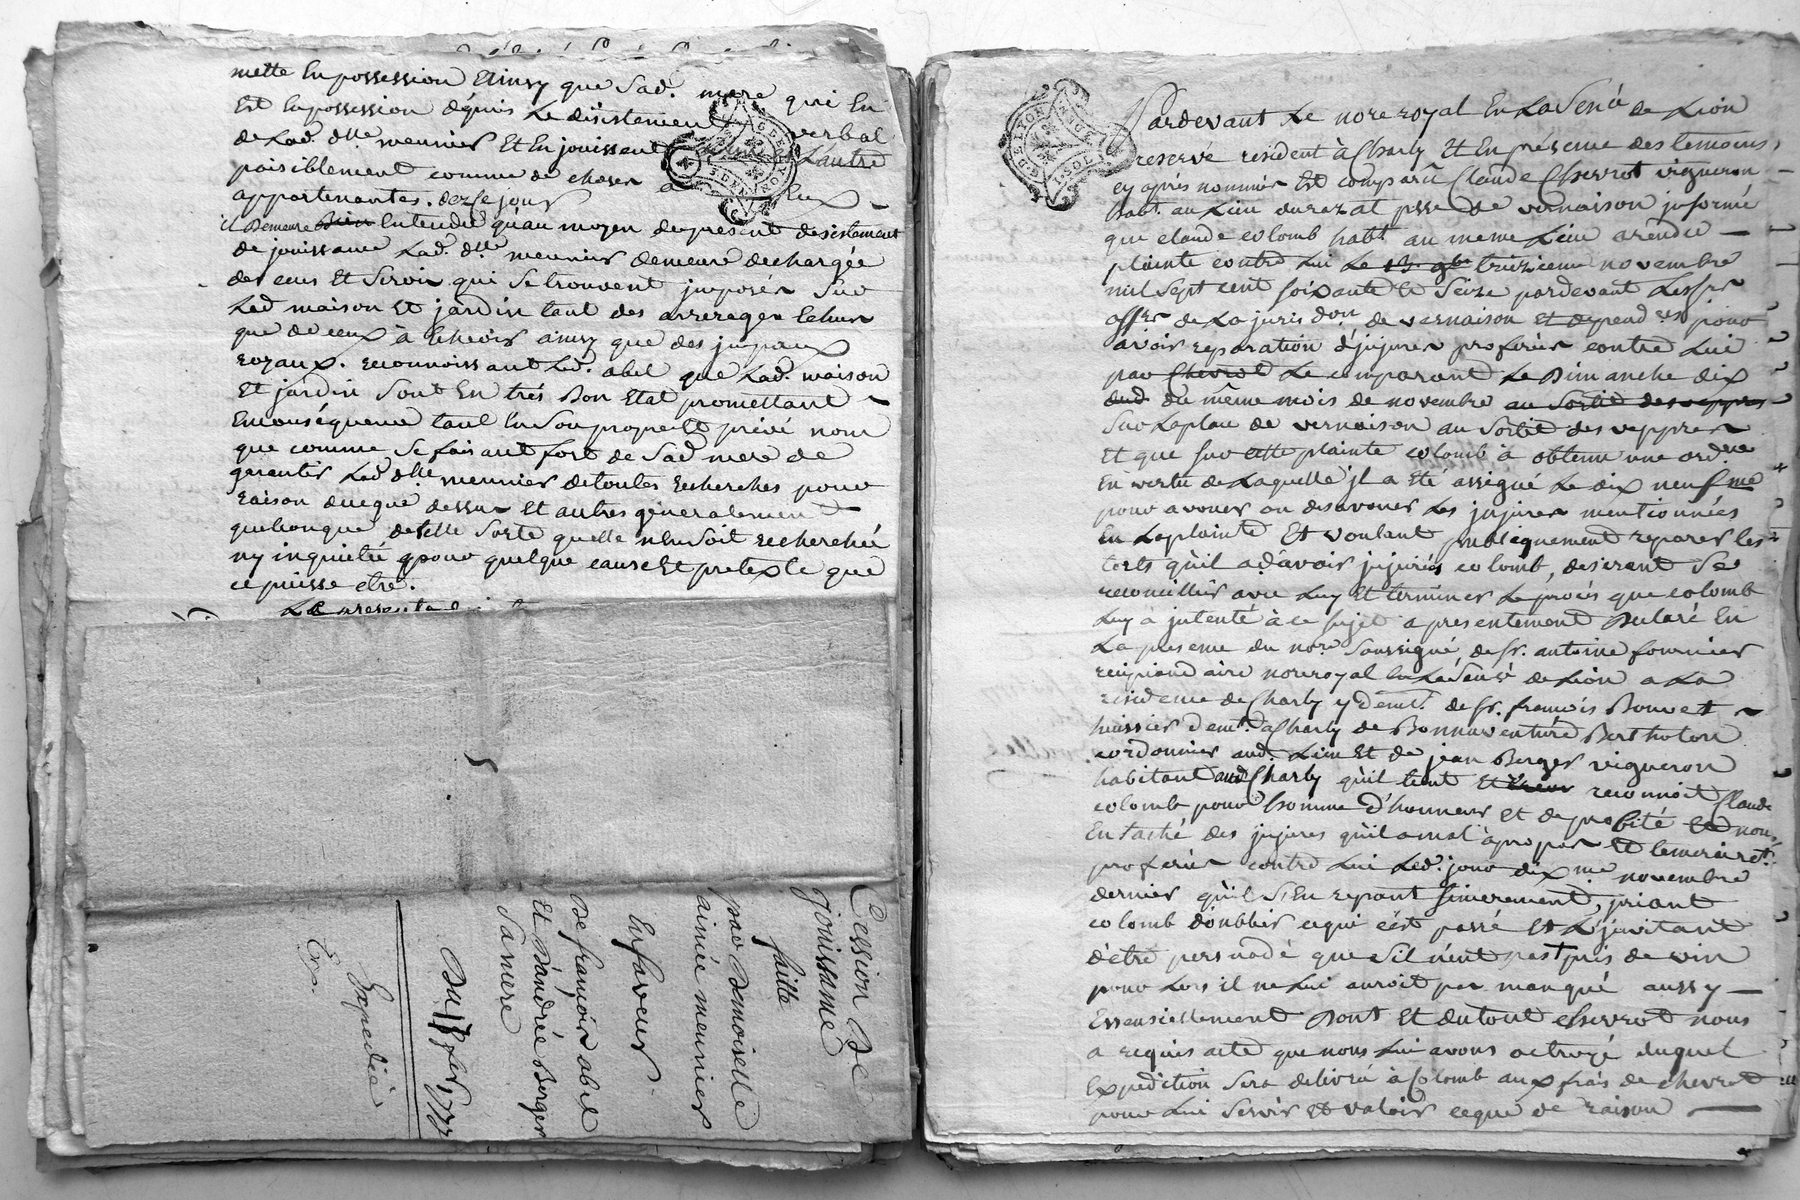 mette En possession Et insy que Sad. mere qui En
Est En possession depuis Le désistement verbal
de Lad. dlle meunier Et En jouissent L'autre
paisiblement comme de choses à Eux
appartenantes. dez ce jour
il Demeure Bien Entendu qu'au moyen du present desistement
de jouissance Lad. dlle meunier demeure dechargée
des cens Et Servis qui Se trouvent imposés Sur
Lad maison Et jardin tant des arrerages Echus
que de ceux à Echeoir ainsy que des impaux
royaux. reconnoissant Led. abel que Lad. maison
Et jardin Sont En très Bon Etat promettant
En conséquence tant En Son propre Et privé nom
que comme Se faisant fort de Sad mere de
garantir Lad dlle meunier de toutes recherches pour
raison du que dessus Et autres généralement
quelconque de telle Sorte quelle n'En Soit recherchée
ny inquietée pour quelque cause Et pretexte que
ce puisse etre.
Cession De
jouissance
faitte
par Demoiselle
aimée meunier
En faveur
De françois abel
Et D'andrée Berger
Sa mere
Du 1777
Expedié
Pardevant Le nore royal En La Séné de Lion
reservé resident à Charly Et En présence des temoins,
cy après nommés Est comparu Claude Chevrot vigneron
habt. au Lieu du razat psse de vernaison informé
que claude colomb habt au meme Lieu a rendu
plainte contre Lui Le 13 9bre treizieme novembre
mil Sept cent Soixante Et Seize pardevant Les srs
offers de La jurisdon de vernaison Et dependces pour
avoir reparation d'injures proferées contre Lui
par Chevrot Le comparant Le Dimanche dix
dud du même mois de novembre au Sortir des vepres
Sur La place de vernaison au Sortir des veppres
Et que Sur cette plainte colomb à obtenu une ordnce
En vertu de Laquelle il a Eté assigné Le dix neufme
pour avouer ou desavouer Les injures mentionnées
En La plainte Et voulant publiquement reparer les
torts qu'il a d'avoir injurié colomb, desirant Se
reconcillier avec Luy Et terminer Le procès que colomb
Luy à intenté à ce Sujet a presentement Declaré En
La presence du nore Soussigné, de Sr. antoine fournier
recipiendaire nore royal En La Séné de Lion a La
residence de Charly y demt. de Sr. françois Bouvet
huissier demt. à Charly de Bonnaventure Bertholon
cordonnier aud. Lieu Et de jean Berger vigneron
habitant aud Charly qu'il tient Et reconnoit Claude
colomb pour homme d'honneur Et de probité Et non
Entaché des injures qu'il a mal à propos Et temerairet.
proferées contre Lui Led. jour dixme novembre
dernier qu'il S'En repent Sincerement, priant
colomb d'oublier ce qui s'est passé Et L'invitant
d'être persuadé que S'il n'eut pas Eté pris de vin
pour Lors il ne Lui auroit pas manqué aussy
Essensiellement Dont Et du tout Chevrot nous
a requis acte que nous Lui avons octroyé duquel
Expedition Sera delivrée à Colomb aux frais de Chevrot
pour Lui Servir Et valoir ce que de raison